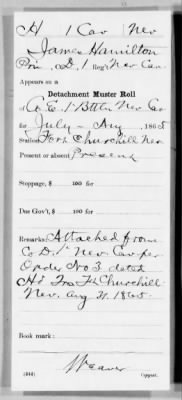 H 1 Cav Nev
James Hamilton
Pri., D, 1 Reg't Nev Cav.
Appears on a
Detachment Muster Roll
of Co E, 1' Batt'n Nev Ca
for July - Aug, 1865
Station Fort Churchill Nev
Present or absent Present
Stoppage, $ 100 for
Due Gov't, $ 100 for
Remarks: Attached from
Co D. 1" Nev Cav per
Order No 3 dated
Hd Qrs Ft Churchill
Nev. Aug 31 1865.
Book mark:
Weaver
Copyist.